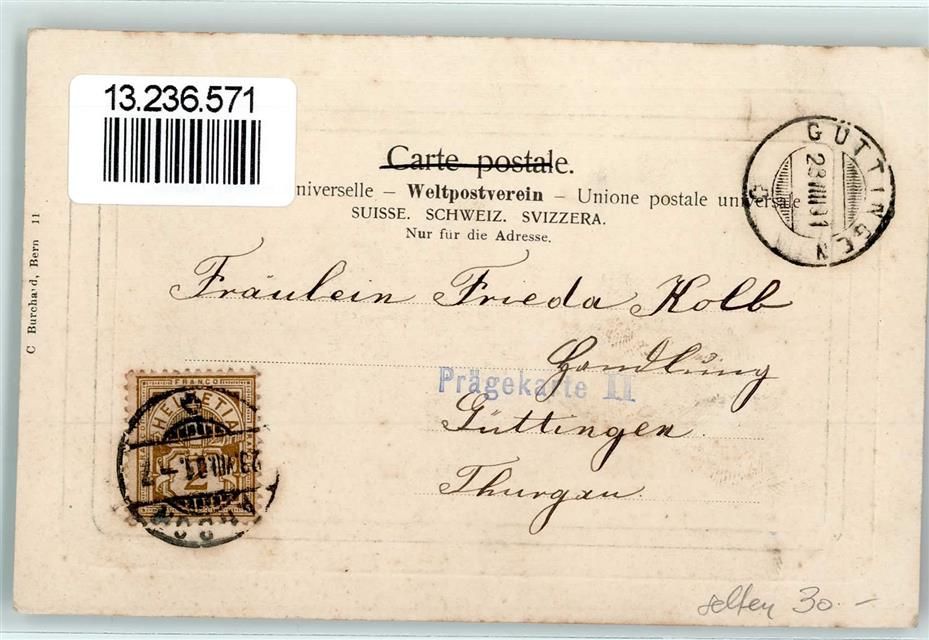 13.236.571
Carte postale.
niverselle – Weltpostverein – Unione postale universale
SUISSE. SCHWEIZ. SVIZZERA.
Nur für die Adresse.
GÜTTINGEN
23 VIII 01
C Burchard, Bern 11
Fräulein Frieda Kolb
Handlung
Prägekarte II
Güttingen
Thurgau.
FRANCO
HELVETIA
2
selten 30.–